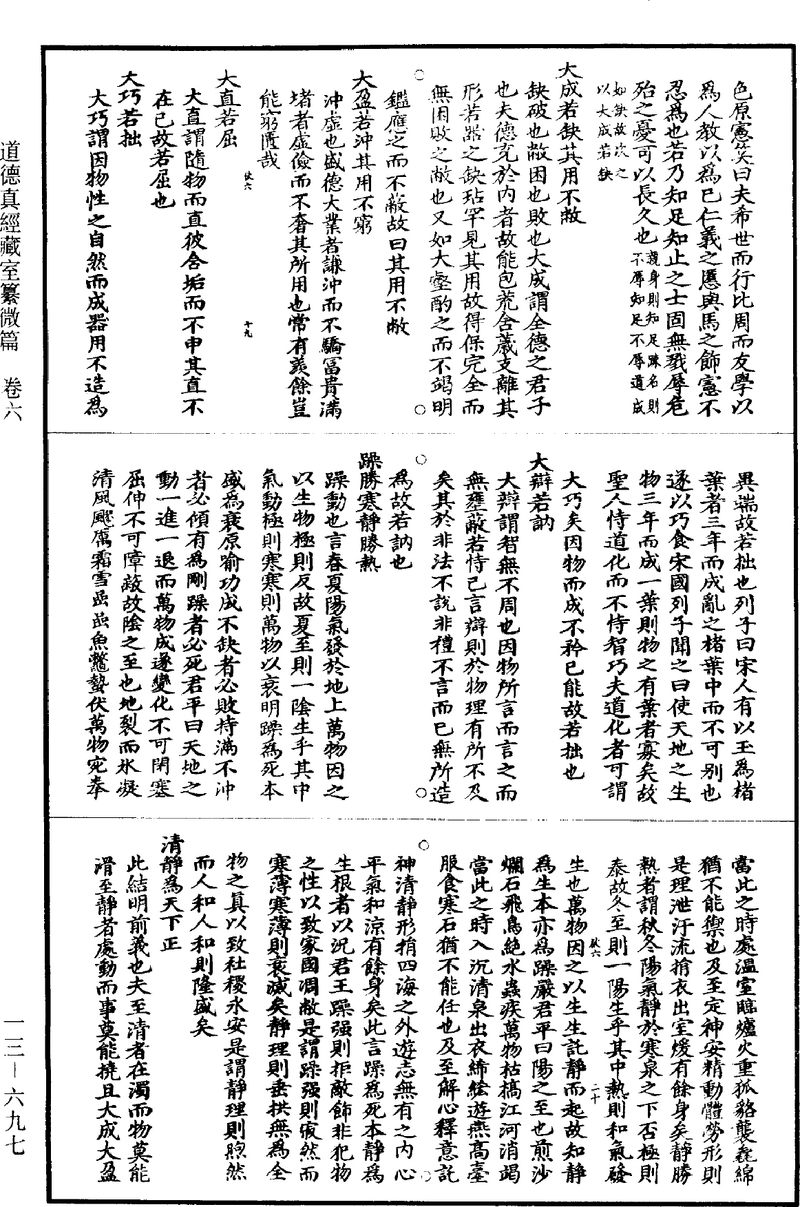 色原憲笑曰夫希世而行比周而友學以
爲人教以爲已仁義之慝與馬之飾憲不
忍爲也若乃知足知止之士固無戮辱危
殆之憂可以長久也親身則知足踈名則不辱知足不辱道成
如缺故次之以大成若缺
大成若缺其用不敝
缺破也敝困也敗也大成謂全德之君子
也夫德充於内者故能包荒含藏支離其
形若器之缺玷罕見其用故得保完全而
無困敗之敝也又如大壑酌之而不竭明
鑑應之而不蔽故曰其用不敝
大盈若沖其用不窮
沖虛也盛德大業者謙沖而不驕冨貴滿
堵者虛儉而不奢其所用也常有羨餘豈
能窮匱哉
大直若屈
大直謂隨物而直彼含垢而不申其直不
在已故若屈也
大巧若拙
大巧謂因物性之自然而成器用不造爲
異端故若拙也列子曰宋人有以玉爲楮
葉者三年而成亂之楮葉中而不可别也
遂以巧食宋國列子聞之曰使天地之生
物三年而成一葉則物之有葉者寡矣故
聖人恃道化而不恃智巧夫道化者可謂
大巧矣因物而成不矜已能故若拙也
大辯若訥
大辯謂智無不周也因物所言而言之而
無壅蔽若恃已言辯則於物理有所不及
矣其於非法不說非禮不言而已無所造
爲故若訥也
躁勝寒静勝熱
躁動也言春夏陽氣發於地上萬物因之
以生物極則反故夏至則一陰生乎其中
氣動極則寒寒則萬物以衰明躁爲死本
盛爲衰原喻功成不缺者必敗持滿不沖
者必傾有爲剛躁者必死君平曰天地之
動一進一退而萬物成遂變化不可閉塞
屈伸不可障蔽故陰之至也地裂而氷凝
清風飂厲霜雪嵓嵓魚鼈蟄伏萬物宛拳
當此之時處温室臨爐火重狐貉襲毳綿
猶不能禦也及至定神安精動體勞形則
是理泄汗流揹衣出室煖有餘身矣静勝
熱者謂秋冬陽氣静於寒泉之下否極則
泰故冬至則一陽生乎其中熱則和氣發
生也萬物因之以生生託静而起故知静
爲生本亦爲躁嚴君平曰陽之至也煎沙
爛石飛鳥絶水蟲疾萬物枯槁江河消竭
當此之時入沉清泉出衣絺綌遊燕髙臺
服食寒石猶不能任也及至解心釋意託
神清静形捎四海之外遊志無有之内心
平氣和涼有餘身矣此言躁爲死本静爲
生根者以況君王躁强則拒敵飾非犯物
之性以致家國凋敝是謂躁强則㝛然而
寒薄寒薄則衰滅矣静理則垂拱無爲全
物之真以致社稷永安是謂静理則煦然
而人和人和則隆盛矣
清静爲天下正
此結明前義也夫至清者在濁而物莫能
滑至静者處動而事莫能撓且大成大盈
道德真經藏室纂微篇　卷六
一三—六九七